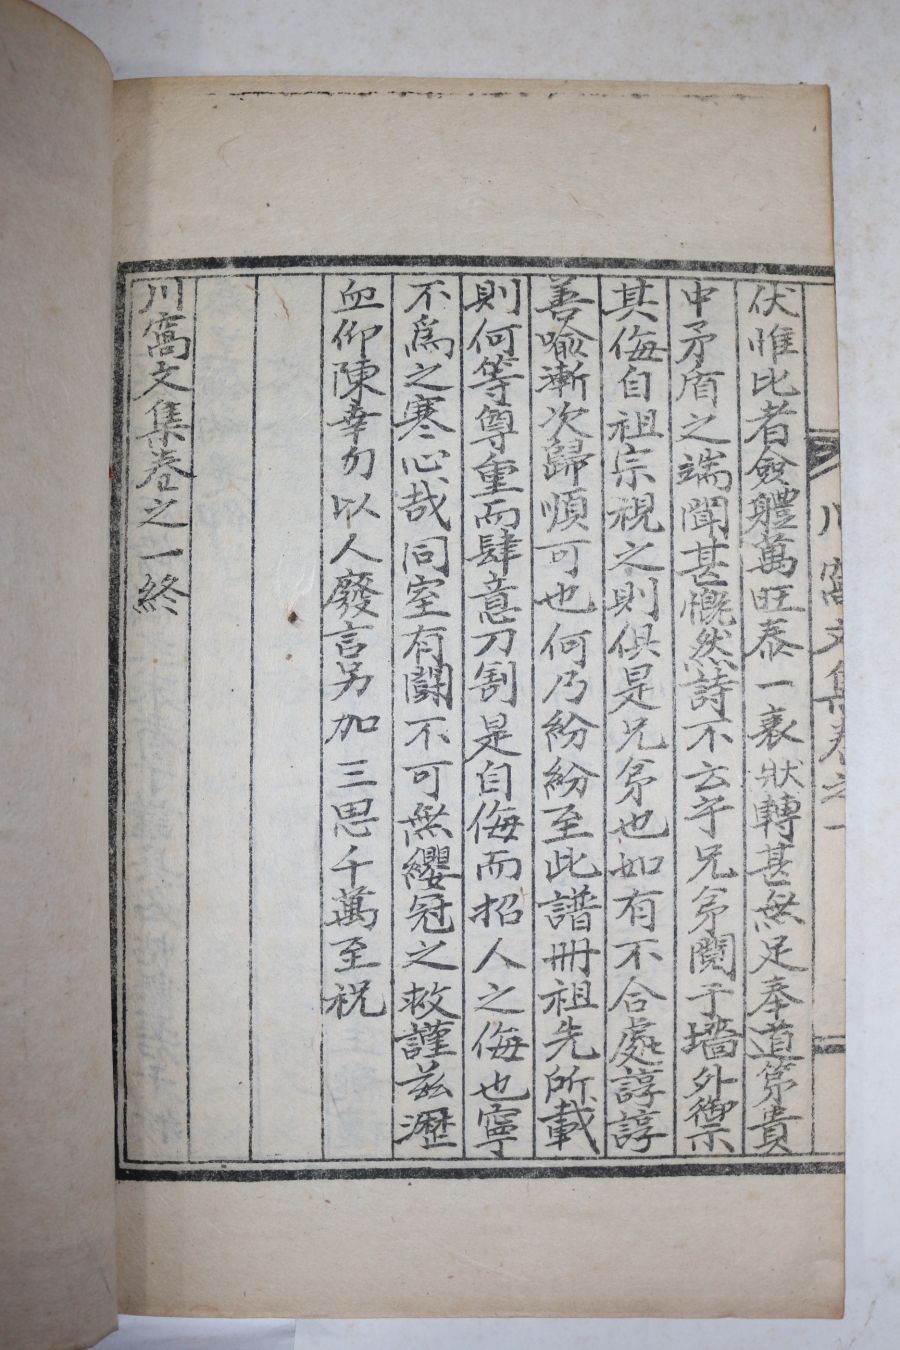 川窩文集卷之一
伏惟比者僉體萬旺泰一衰狀轉甚無足奉道第貴
中矛盾之端聞甚慨然詩不云乎兄弟鬩于墻外禦
其侮自祖宗視之則俱是兄弟也如有不合處諄諄
善喩漸次歸順可也何乃紛紛至此譜冊祖先所載
則何等尊重而肆意刀割是自侮而招人之侮也寧
不爲之寒心哉同室有鬪不可無纓冠之救謹玆瀝
血仰陳幸勿以人廢言另加三思千萬至祝
川窩文集卷之一終